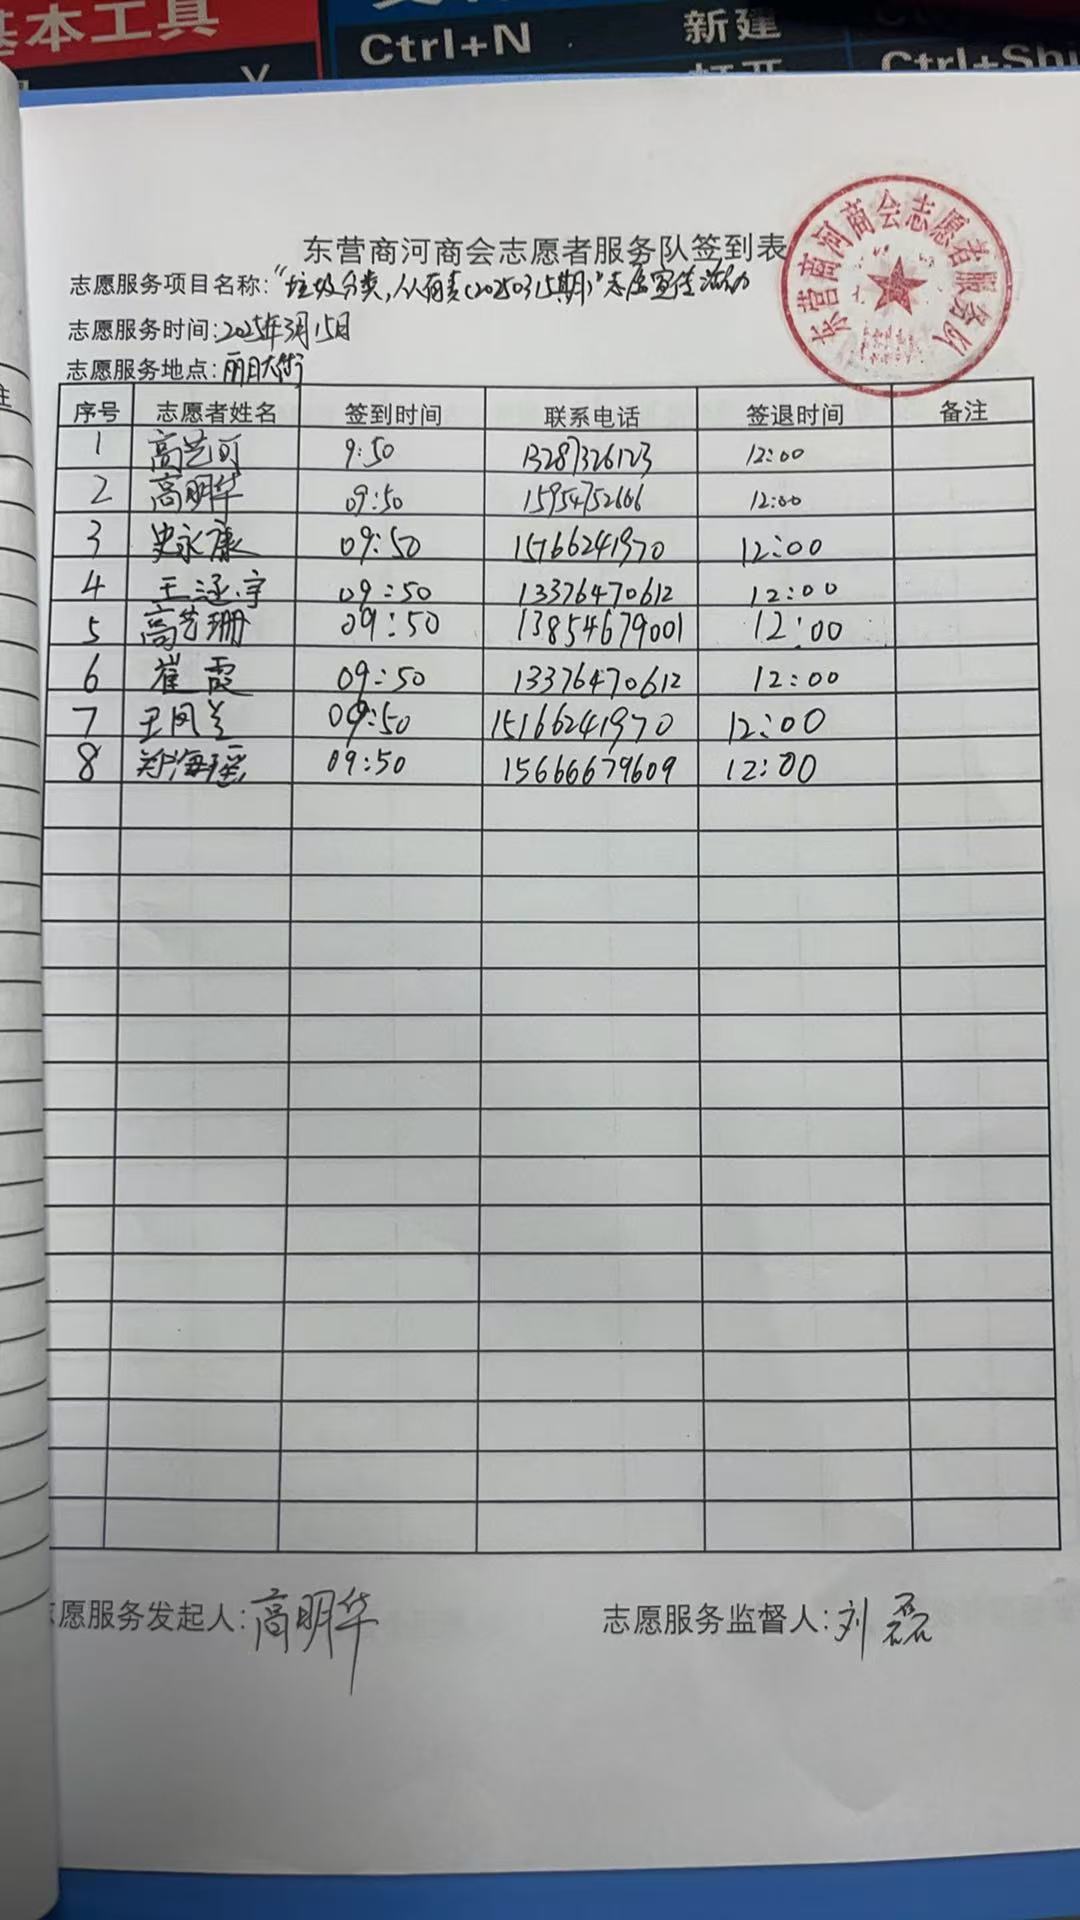 基本工具
Ctrl+N 新建
打开 Ctrl+Shi
东营商河商会志愿者服务队签到表
东营商河商会志愿者服务队
志愿服务项目名称:“垃圾分类,人人有责(20250315期)”志愿宣传活动
志愿服务时间:2025年3月15日
志愿服务地点:丽日大街
序号 志愿者姓名 签到时间 联系电话 签退时间 备注
1 高艺可 9:50 13287326123 12:00
2 高明华 09:50 15954752606 12:00
3 史永康 09:50 15166241970 12:00
4 王涵宇 09:50 13376470612 12:00
5 高艺珊 09:50 13854679001 12:00
6 崔霞 09:50 13376470612 12:00
7 王风兰 09:50 15166241970 12:00
8 郑海瑶 09:50 15666679609 12:00
愿服务发起人:高明华 志愿服务监督人:刘磊